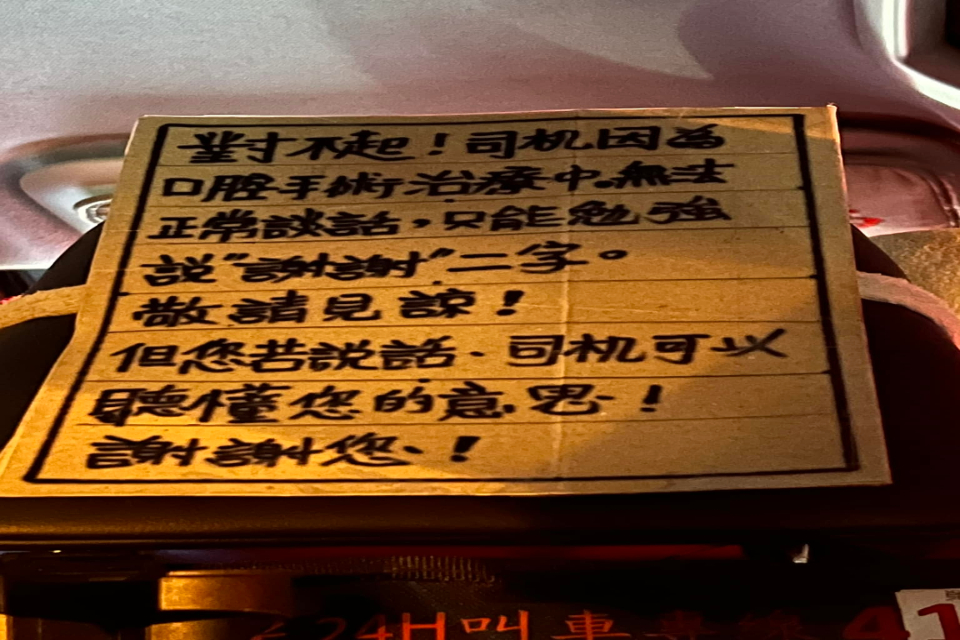 對不起！司机因為
口腔手術治療中.無法
正常談話，只能勉強
說"謝謝"二字。
敬請見諒！
但您若説話.司机可以
聽懂您的意思！
謝謝您！
24H叫車